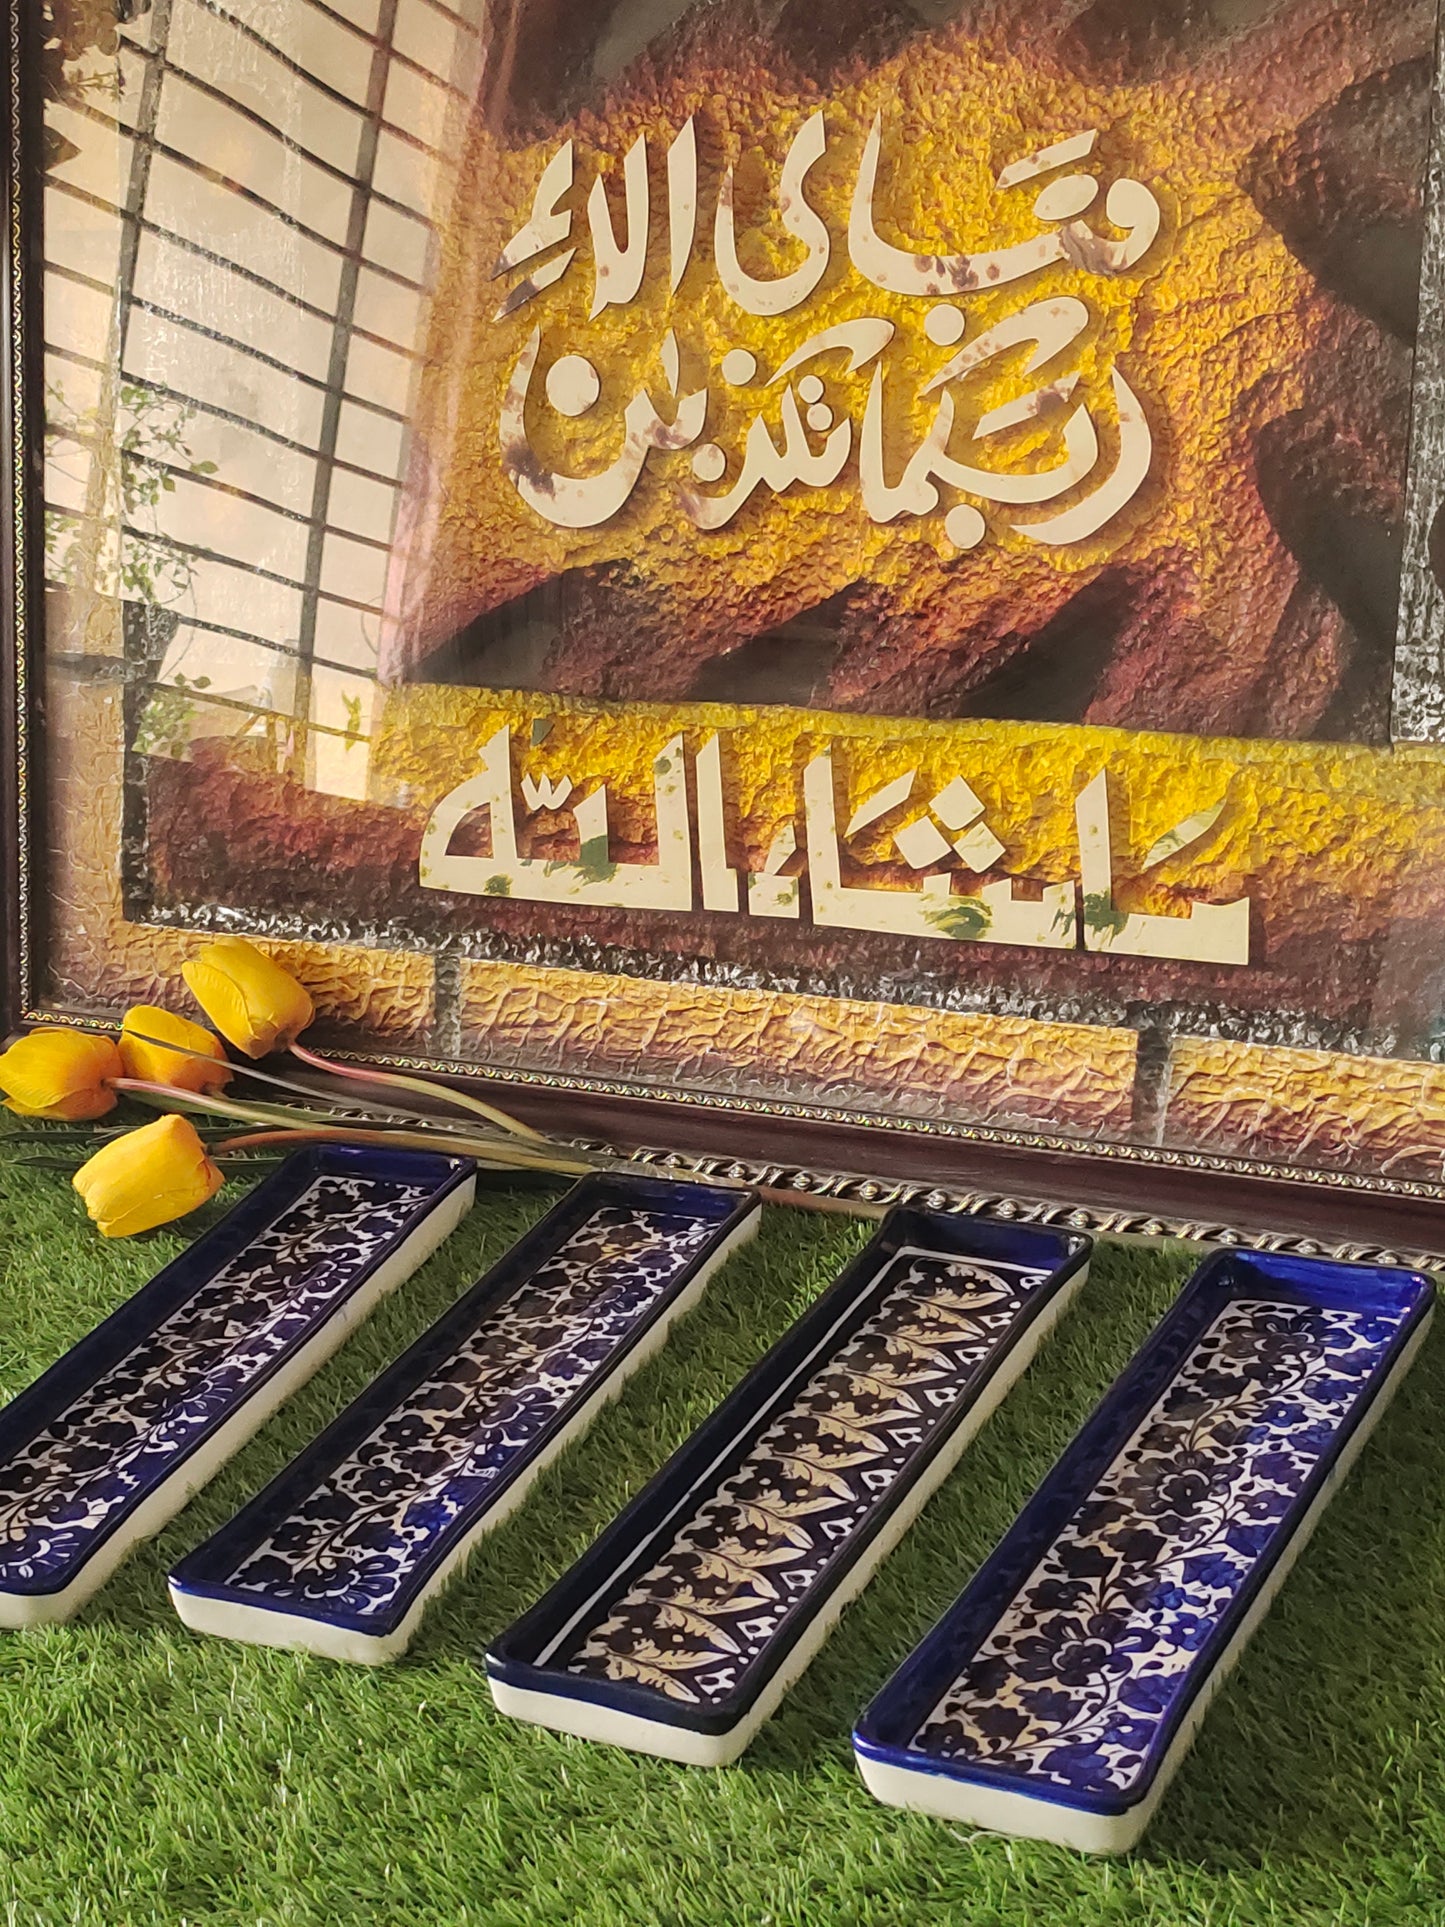 فبای الاء
ربکما تکذبن
ماشاءاللّٰه